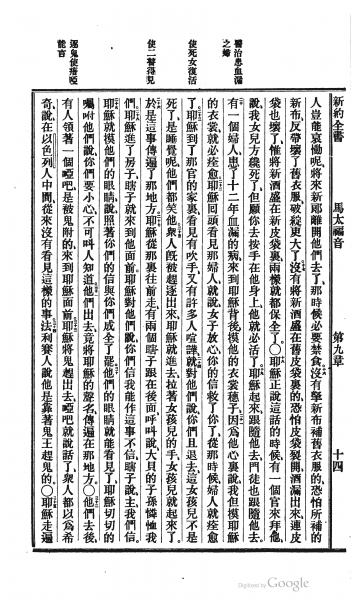 新約全書 馬太福音 第九章 十四
醫治患血漏之婦
使死女復活
使二瞽得見
逐鬼使瘖啞能言
人豈能哀慟呢、將來新郎離開他們去了、那時候必要禁食、沒有擘新布補舊衣服的、恐怕所補的
新布、反帶壞了舊衣服、破綻更大了、沒有將新酒盛在舊皮袋裏的、恐怕皮袋裂開、酒漏出來、連皮
袋也壞了、惟將新酒盛在新皮袋裏、兩樣就都保全了、〇耶穌正說這話的時候、有一個官來拜他、
說、我女兒方纔死了、但願你去按手在他身上、他就必活了、耶穌起來、跟隨他去、門徒也跟隨他去、
有一個婦人、患了十二年血漏的病、來到耶穌背後、摸他的衣裳穗子、因為他心裏說、我但摸耶穌
的衣裳、就必痊愈、耶穌囘頭看見那婦人、就說、女子放心、你的信救了你了、從那時候、婦人就痊愈
了、耶穌到了那官的家裏、看見有吹手、又有許多人喧譁、就對他們說、你們且退去、這女孩兒不是
死了、是睡覺呢、他們都笑他、衆人旣被趕逐出來、耶穌就進去、拉著女孩兒的手、女孩兒就起來了、
於是這事傳遍了那地方、耶穌從那裏往前走、有兩個瞎子跟在後面、呼呌說、大辟的子孫、憐恤我
們、耶穌進了房子、瞎子就來到他面前、耶穌對他們說、你們信我能作這事不信、瞎子說、主、我們信、
耶穌就摸他們的眼睛、說、照著你們的信、與你們成全了罷、他們的眼睛就能看見了、耶穌切切的
囑咐他們說、你們要小心、不可叫人知道、他們出去、竟將耶穌的聲名、傳遍在那地方、〇他們去後、
有人領著一個啞吧、是被鬼附的、來到耶穌面前、耶穌將鬼趕出去、啞吧就說話了、衆人都以為希
奇、說、在以色列人中間、從來沒有看見這樣的事、法利賽人說、他是靠著鬼王趕鬼的、〇耶穌走遍
Digitized by Google